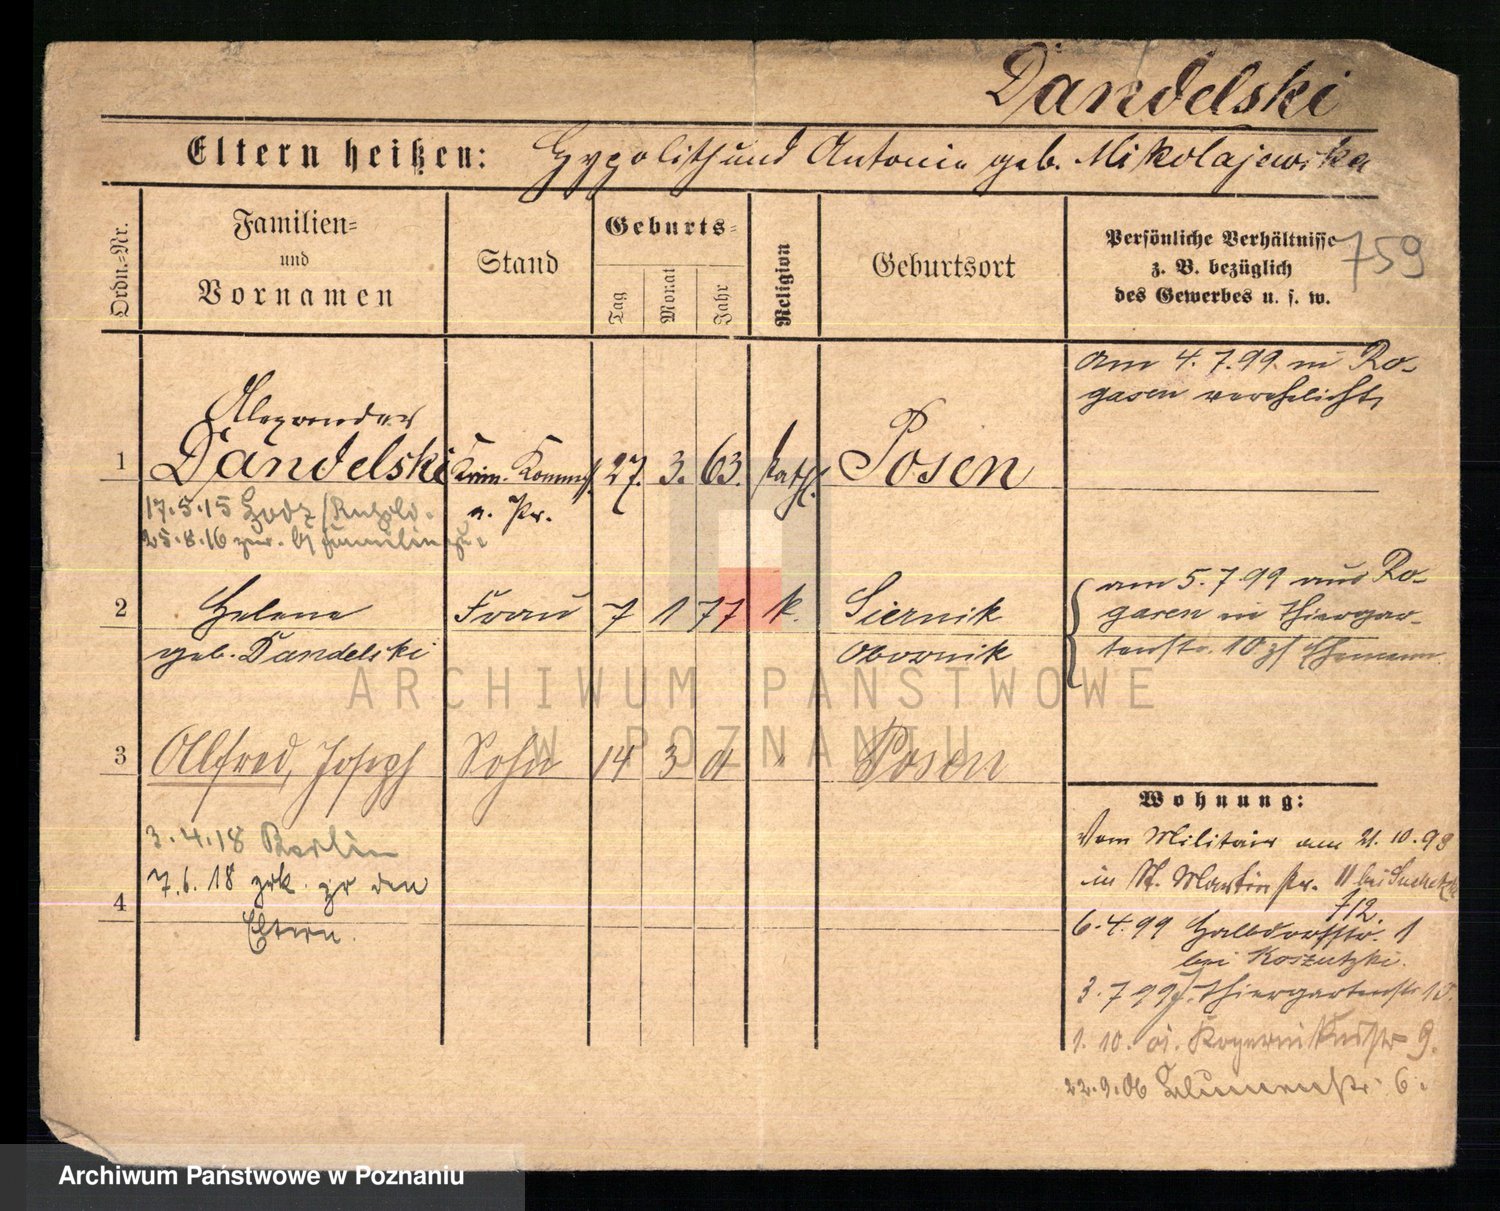 Dandelski
Eltern heißen: Hypolith und Antonie geb. Mikolajewska
Ordn.-Nr.
Familien-
und
Vornamen
Stand
Geburts-
Tag
Monat
Jahr
Religion
Geburtsort
Persönliche Verhältnisse
z. B. bezüglich
des Gewerbes u. s. w.
759
am 4.7.99. in Ro-
gasen verehelicht
Alexander
1 Dandelski Krim. Kommiss. 27. 3. 63. kath. Posen
a. Pr.
17.5.15 Lodz
25.8.16 zur. Familie
2 Helene Frau 7 1 77 k. Siernik
geb. Dandelski Obornik
am 5.7.99 aus Ro-
gasen in Thiergar-
tenstr. 10 Ehemann
3 Alfred, Joseph Sohn 14 3 01 " Posen
3.4.18 Berlin
7.6.18 zrk. zr den
4
Eltern.
Wohnung:
Vom Militair am 21.10.93
in St. Martinstr. 11 bei
712.
6.4.99 Halbdorfstr. 1
bei Koszutzki.
3.7.99 Thiergartenstr 10.
1.10.01. Kopernikusstr 9.
22.9.06 Blumenstr. 6.
ARCHIWUM PAŃSTWOWE
W POZNANIU
Archiwum Państwowe w Poznaniu